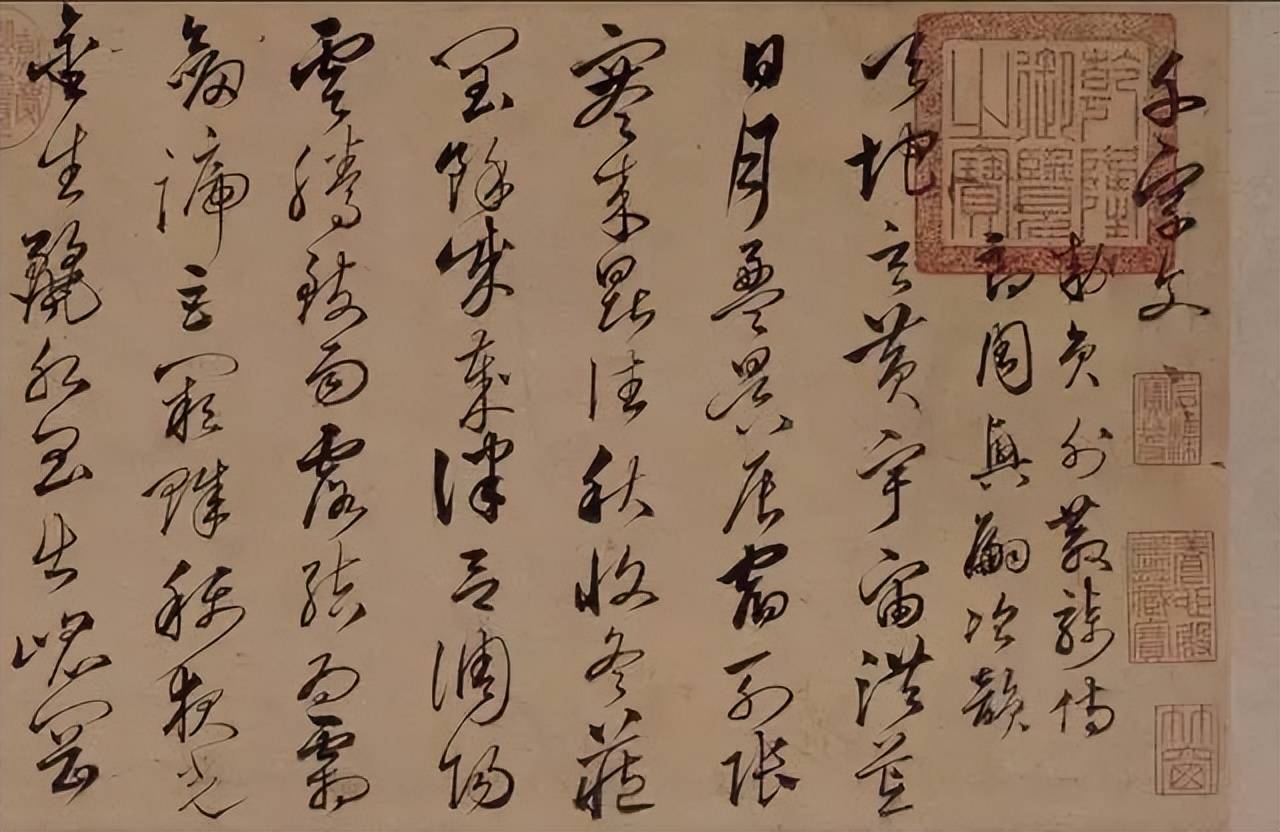 千字文
敕員外散騎侍
郎周興嗣次韻
天地玄黃宇宙洪荒
日月盈昃辰宿列張
寒來暑往秋收冬藏
閏餘成歲律呂調陽
雲騰致雨露結為霜
劍號巨闕珠稱夜光
金生麗水玉出崑岡
乾隆御覽之寶
石渠寶笈
養心殿鑑藏寶
竹窗